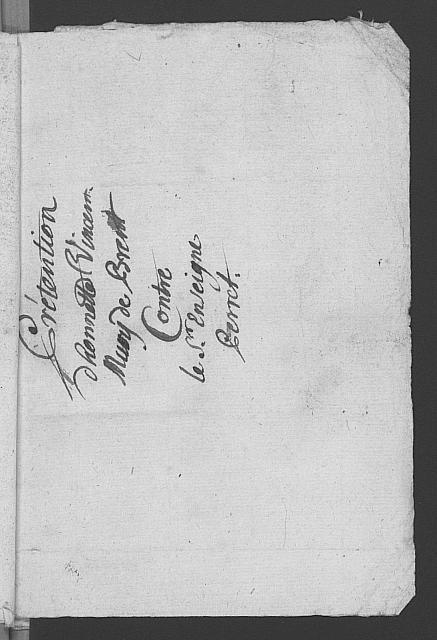 Prétention
d'honnette Vincent
Mury de Brent
Contre
le Sr. Enseigne
Perret.